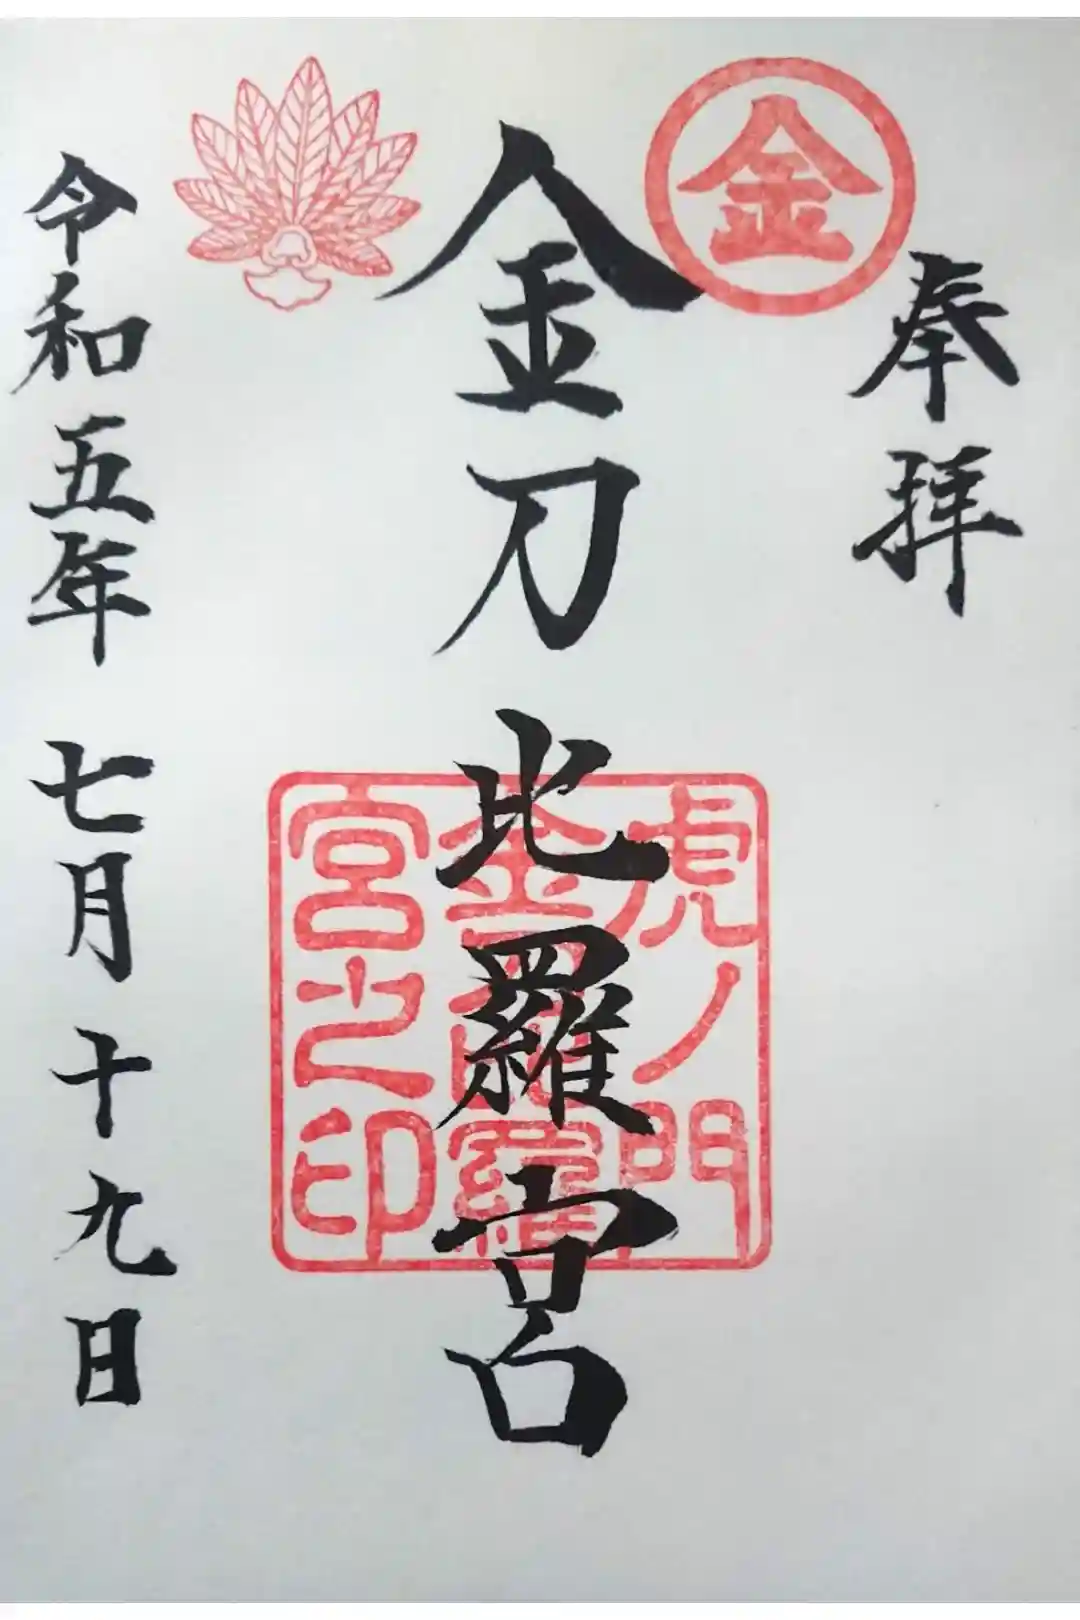 奉拝
金
金刀比羅宮
虎ノ門
金刀比羅
宮之印
令和五年七月十九日